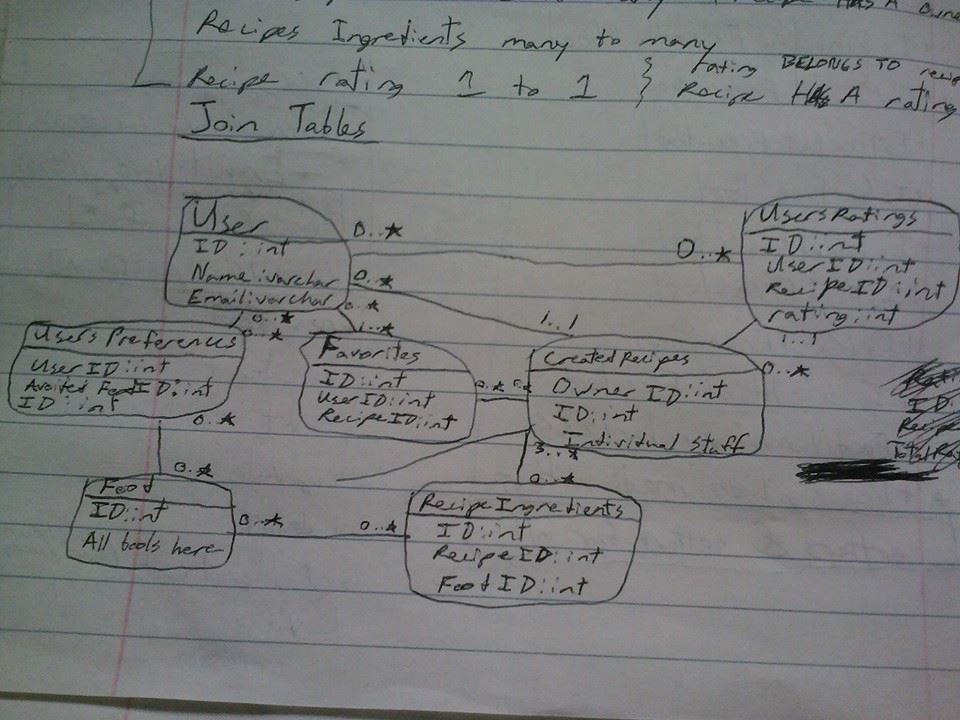 Recipe Has A owne
Recipes Ingredients many to many
rating BELONGS TO recip
Recipe rating 1 to 1 } Recipe HAS A rating
Join Tables
User
ID: int
Name:varchar
Email:varchar
0..*
0..*
0..*
0..*
UsersRatings
ID:int
UserID:int
RecipeID:int
rating:int
1..1
0..*
0..*
1..*
1..1
UsersPreferences
UserID:int
Avoited FootID:int
ID:int
0..*
Favorites
ID:int
UserID:int
RecipeID:int
0..*
Created Recipes
Owner ID:int
ID:int
Intividual stuff
0..*
3..*
0..*
0..*
Foot
ID:int
All bools here
0..*
0..*
RecipeIngredients
ID:int
RecipeID:int
FootID:int
ID: